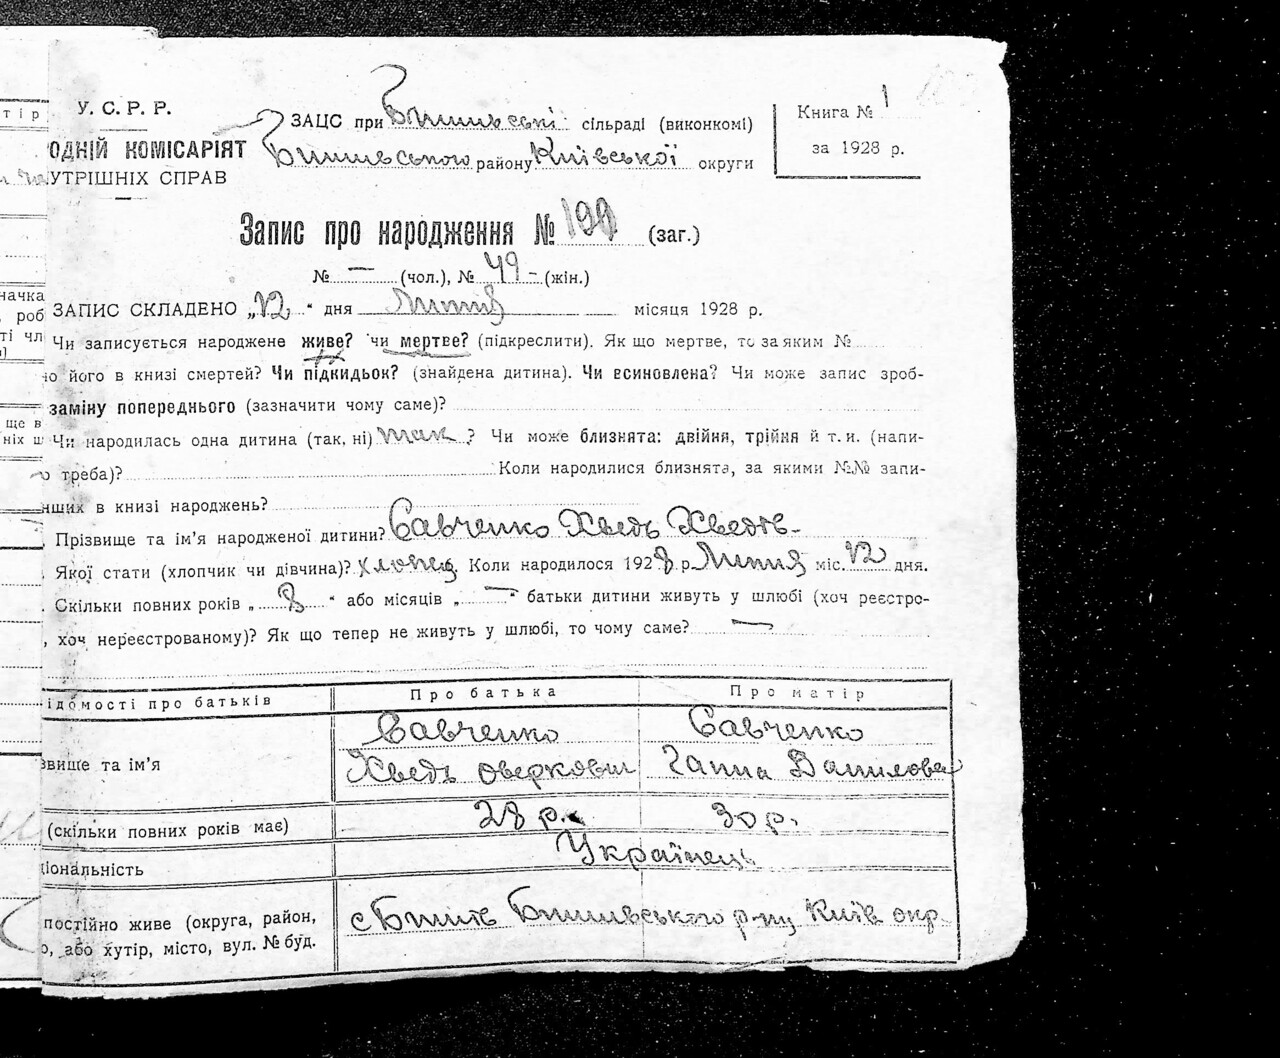 У. С. Р. Р.
ОДНІЙ КОМІСАРІЯТ
УТРІШНІХ СПРАВ
ЗАЦС при Бишівські сільраді (виконкомі)
Бишівського району Київської округи
Книга № 1
за 1928 р.
Запис про народження № 199 (заг.)
№ — (чол.), № 49 - (жін.)
ЗАПИС СКЛАДЕНО „12“ дня Липня місяця 1928 р.
Чи записується народжене живе? чи мертве? (підкреслити). Як що мертве, то за яким №
но його в книзі смертей? Чи підкидьок? (знайдена дитина). Чи всиновлена? Чи може запис зроб-
заміну попереднього (зазначити чому саме)?
Чи народилась одна дитина (так, ні) так ? Чи може близнята: двійня, трійня й т. и. (напи-
о треба)? Коли народилися близнята, за якими №№ запи-
нших в книзі народжень?
Прізвище та ім'я народженої дитини? Савченко Хведь Хведів-
Якої стати (хлопчик чи дівчина)? хлопец. Коли народилося 1928 р. Липня міс. 12 дня.
Скільки повних років „ 8 “ або місяців „ — “ батьки дитини живуть у шлюбі (хоч реєстро-
, хоч нереєстрованому)? Як що тепер не живуть у шлюбі, то чому саме? —
ідомості про батьків Про батька Про матір
Савченко Савченко
звище та ім'я Хведь Оверкович Ганна Данилова
(скільки повних років має) 28 р. 30 р.
ціональність Українець
постійно живе (округа, район,
о, або хутір, місто, вул. № буд.
с Бишів Бишівського р-ну Київ окр.